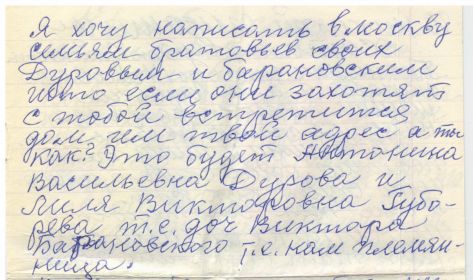 Я хочу написать в москву
семьям братовьев своих
Дуровым и барановским
и что если они захотят
с тобой встретится
дом им твой адрес а ты
как? Это будет Антонина
Васильевна Дурова и
Лиля Викторовна Губо-
рева т.е. доч Виктора
Барановского т.е. нам племян-
ница.